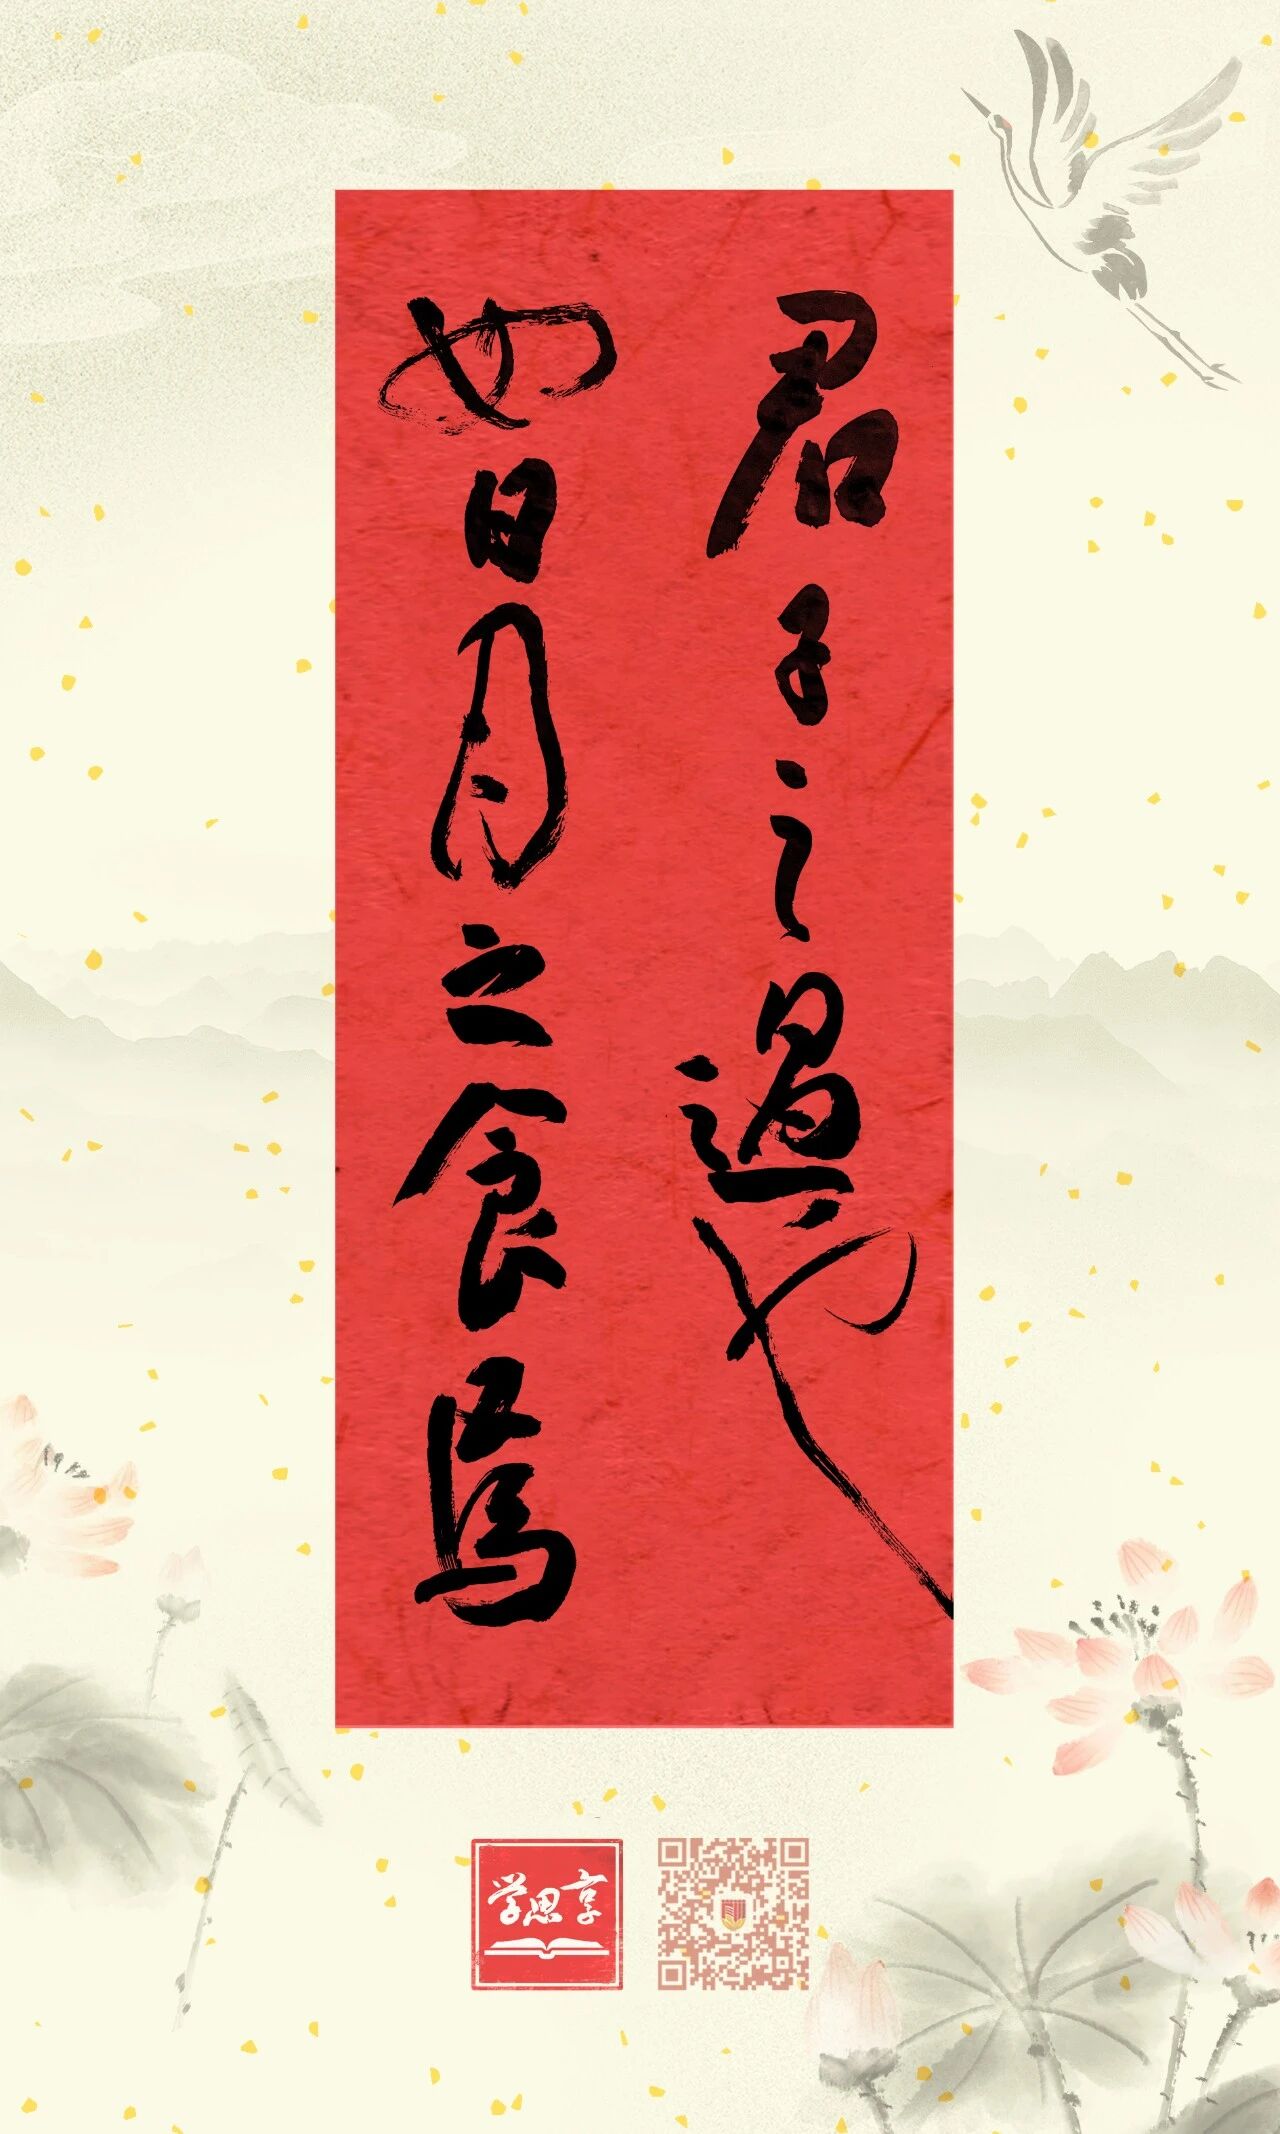 君子之过也
如日月之食焉
学思享